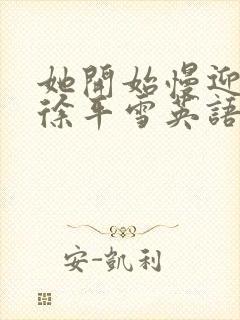 她開始慢迎
徐平雪英語
安-凱利